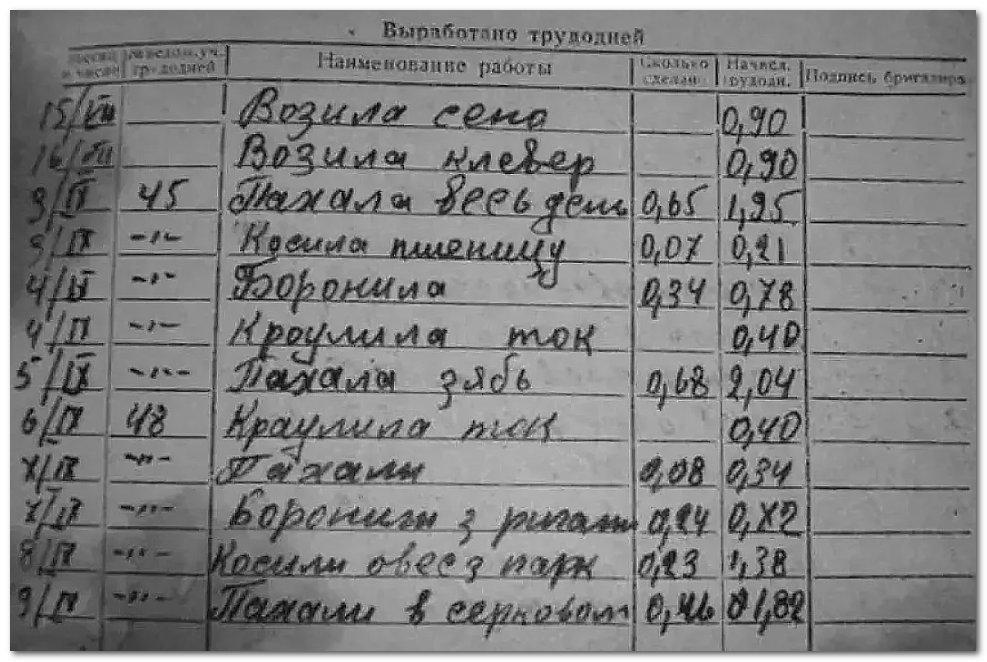 Выработано трудодней
Месяц и число № ведом. уч. трудодней Наименование работы Сколько сделано Начисл. трудодн. Подпись бригадира
15/VIII Возила сено 0,90
16/VIII Возила клевер 0,90
3/IX 45 Пахала весь день 0,65 1,95
3/IX -"- Косила пшеницу 0,07 0,21
4/IX -"- Боронила 0,34 0,78
4/IX -"- Кроулила ток 0,40
5/IX -"- Пахала зябь 0,68 2,04
6/IX 48 Краулила ток 0,40
7/IX -"- Пахали 0,08 0,34
7/IX -"- Боронили з 0,24 0,72
8/IX -"- Косили овес з парк 0,23 1,38
9/IX -"- Пахали в 1,82